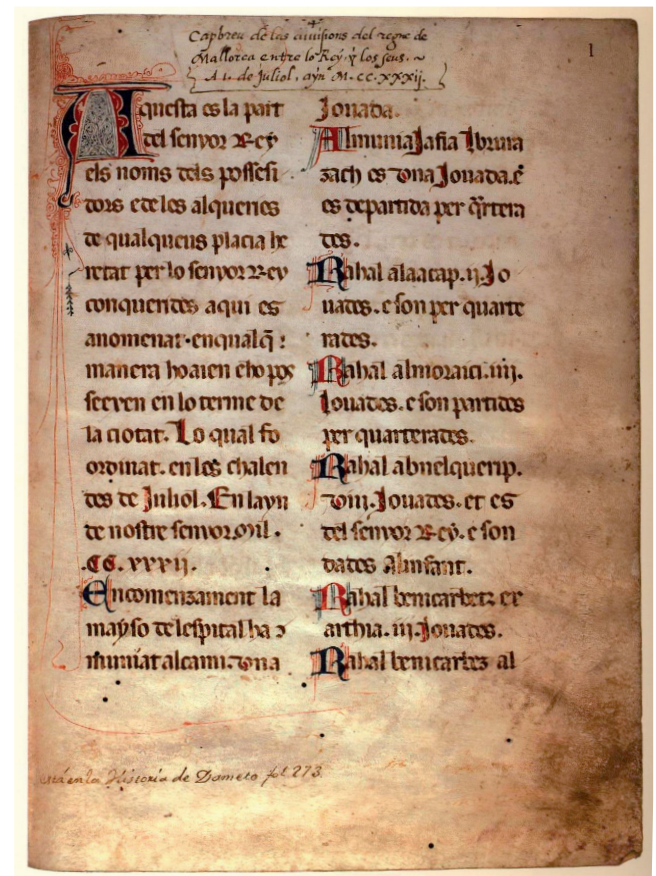 Capbreu de las divisions del regne de
Mallorca entre lo Rey, y los seus. ~
A 1. de Juliol, ayn M.CC.XXXij.
1
Aquesta es la part
del senyor Rey
els noms dels possesi
dors e de les alqueries
de qualqueus placia he
retat per lo senyor Rey
conquerides aqui es
anomenat. en qualq̄
manera ho aien e ho pos
seeyen en lo terme de
la ciotat. Lo qual fo
ordinat. en les chalen
des de Juliol. En layn
de nostre senyor. Mil.
.CC. xxxij.
Encomenzament la
mayso de lespital ha
alcami. dona
Jouada.
Almunia Jafia
zach es dona Jouada. e
es departida per q̄rtera
des.
Rahal alaacap. ij. Jo
uades. e son per quarte
rades.
Rahal almoraici. iiij.
Jouades. e son partides
per quarterades.
Rahal abnelquerip.
Jouades. et es
del senyor Rey. e son
dades Alinfant.
Rahal benicarbetz ex
arthia. iij. Jouades.
Rahal benicarbez al
està en la Historia de Dameto fol. 273.